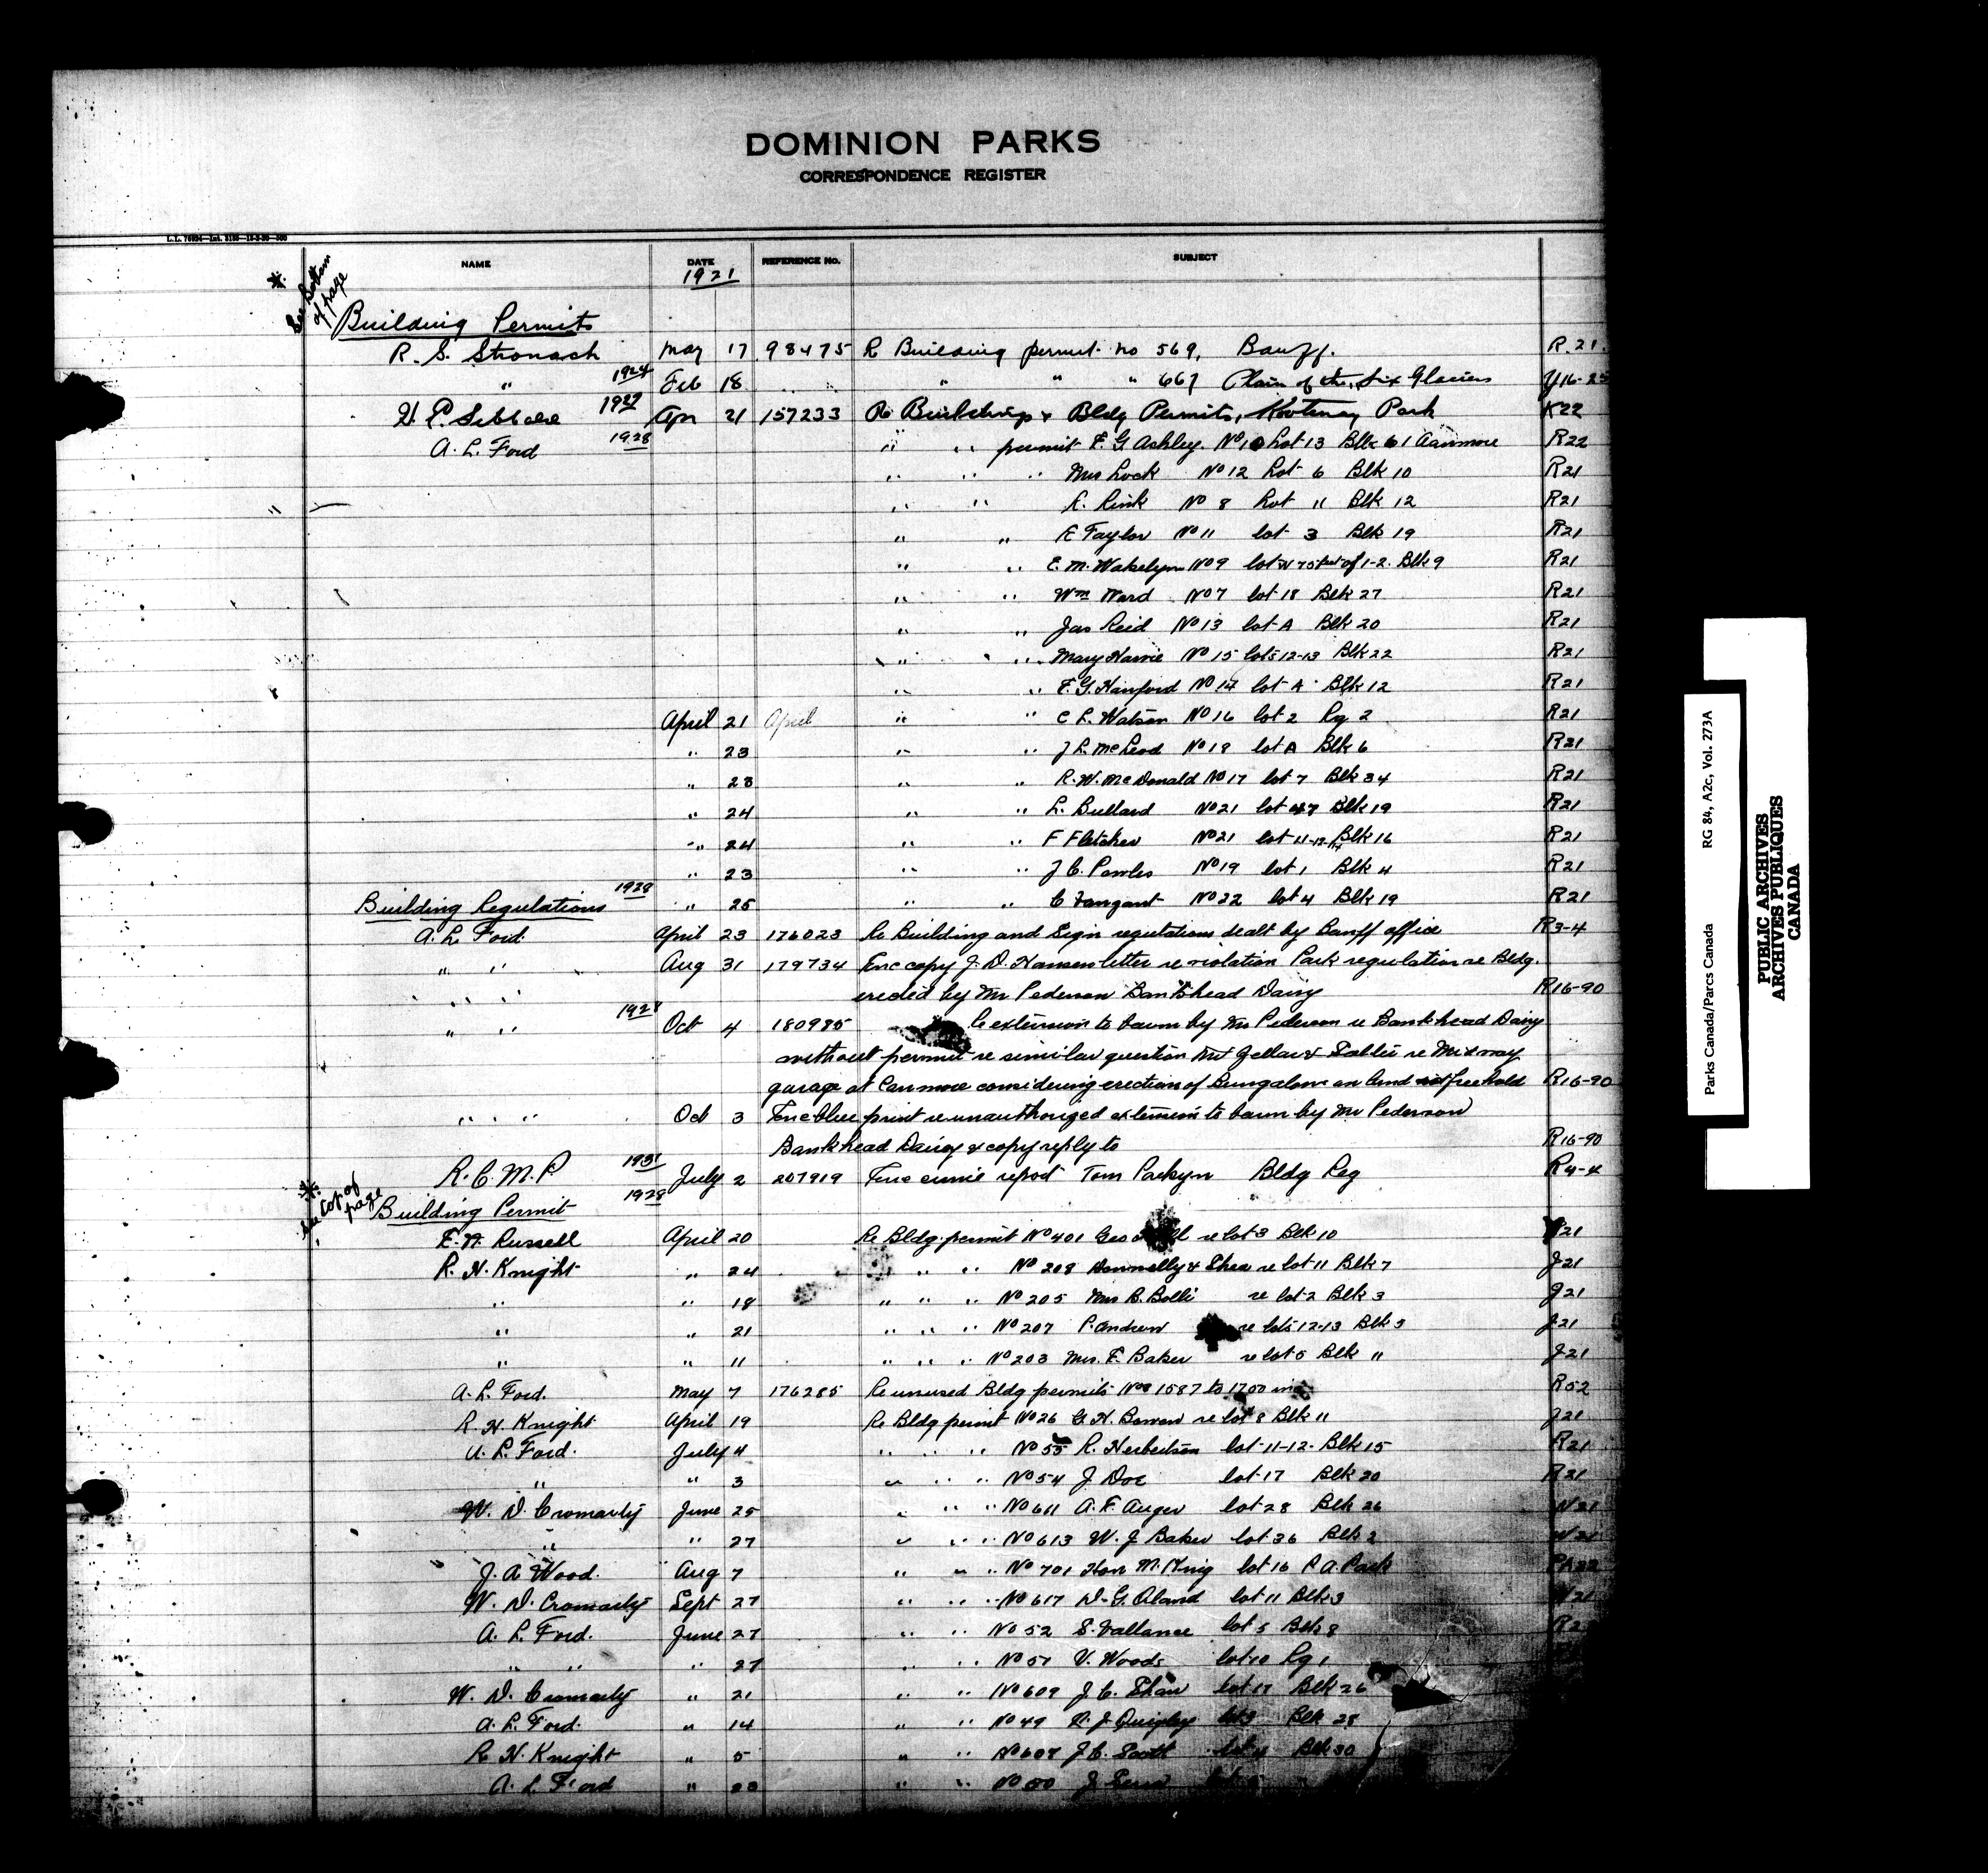 DOMINION PARKS
CORRESPONDENCE REGISTER
NAME DATE REFERENCE No. SUBJECT
1921
* See Bottom of page
Building Permits
R. S. Stronach May 17 98475 Re Building permit no 569, Banff. R.21.
" 1924 Feb 18 " " " 667 Plain of the Six Glaciers
1927 Apr 21 157233 Re Buildings & Bldg Permits, Kootenay Park K22
A. L. Ford 1928 " " permit F. G Ashley. No 10 Lot 13 Blk 61 Canmore R22
" " " Mrs Lock No 12 Lot 6 Blk 10 R21
" " R. Rink No 8 Lot 11 Blk 12 R21
" " Taylor No 11 lot 3 Blk 19 R21
" " E. M. Wakelyn No 9 lot N 75 feet of 1-2. Blk 9 R21
" " Wm Ward No 7 lot 18 Blk 27 R21
" " Jas Reid No 13 lot A Blk 20 R21
" " Mary Harvie No 15 lots 12-13 Blk 22 R21
" " F. G. Hanford No 14 lot A Blk 12 R21
April 21 April " " C L. Watson No 16 lot 2 Rg 2 R21
" 23 " " J L. McLeod No 18 lot A Blk 6 R21
" 23 " " R. W. McDonald No 17 lot 7 Blk 34 R21
" 24 " " L. Bullard No 21 lot Blk 19 R21
" 24 " " F Fletcher No 21 lot 11-12 Blk 16 R21
" 23 " " J C. No 19 lot 1 Blk 4 R21
1928 " 25 " " C No 22 lot 4 Blk 19 R21
Building Regulations
A. L. Ford. April 23 176023 Re Building and Sign regulations dealt by Banff office R3-4
" " Aug 31 179734 Enc copy J. D. Hansen letter re violation Park regulation re Bldg.
" " " erected by Mr Pederson Bankhead Dairy R16-90
" " 1928 Oct 4 180985 Re extension to barn by Mr Pederson re Bankhead Dairy
without permit re similar question re Midway
garage at Canmore considering erection of Bungalows on land freehold R16-90
" " " Oct 3 Enc blue print re unauthorized extension to barn by Mr Pederson
Bankhead Dairy & copy reply to R16-90
R. C. M. P 1931 July 2 207919 Enc crime report Tom Parkyn Bldg Reg R4-4
* See top of page
1928
Building Permit
Russell April 20 Re Bldg. permit No 401 Geo re lot 3 Blk 10 21
R. H. Knight " 24 " " " No 208 Donnelly & Shea re lot 11 Blk 7 J21
" " 18 " " " No 205 Mrs B. Bolli re lot 2 Blk 3 J21
" " 21 " " " No 207 P. Andrew re lots 12-13 Blk 3 J21
" " 11 " " " No 203 Mrs. F. Baker re lot 5 Blk 11 J21
A. L. Ford. May 7 176285 Re unused Bldg permits Nos 1587 to 1700 inc R52
R. H. Knight April 19 Re Bldg permit No 26 G. H. Bowen re lot 8 Blk 11 J21
A. L. Ford. July 4 " " " No 55 R. Herbertson lot 11-12. Blk 15 R21
" " 3 " " " No 54 J. Doe lot 17 Blk 20 R21
W. D. Cromarty June 25 " " " No 611 A. F. Auger lot 28 Blk 26 W21
" " 27 " " " No 613 W. J Baker lot 36 Blk 2 W21
J. A Wood. Aug 7 " " " No 701 Hon M. King lot 16 P. A. Park PA22
W. D. Cromarty Sept 27 " " " No 617 D. G. Aland lot 11 Blk 3 W21
A. L. Ford. June 27 " " No 52 S. Vallance lot 5 Blk 8
" " " 27 " " No 51 V. Woods lot 10 Rg 1
W. D. Cromarty " 21 " " No 609 J. C. Shaw lot 17 Blk 26
A. L. Ford. " 14 " " No 49 J Quigley lot 3 Blk 28
R H. Knight " 5 " " No 607 J. C. Scott Blk 30
A. L. Ford " 23 " " No 50 J
Parks Canada/Parcs Canada RG 84, A2c, Vol. 273A
PUBLIC ARCHIVES
ARCHIVES PUBLIQUES
CANADA